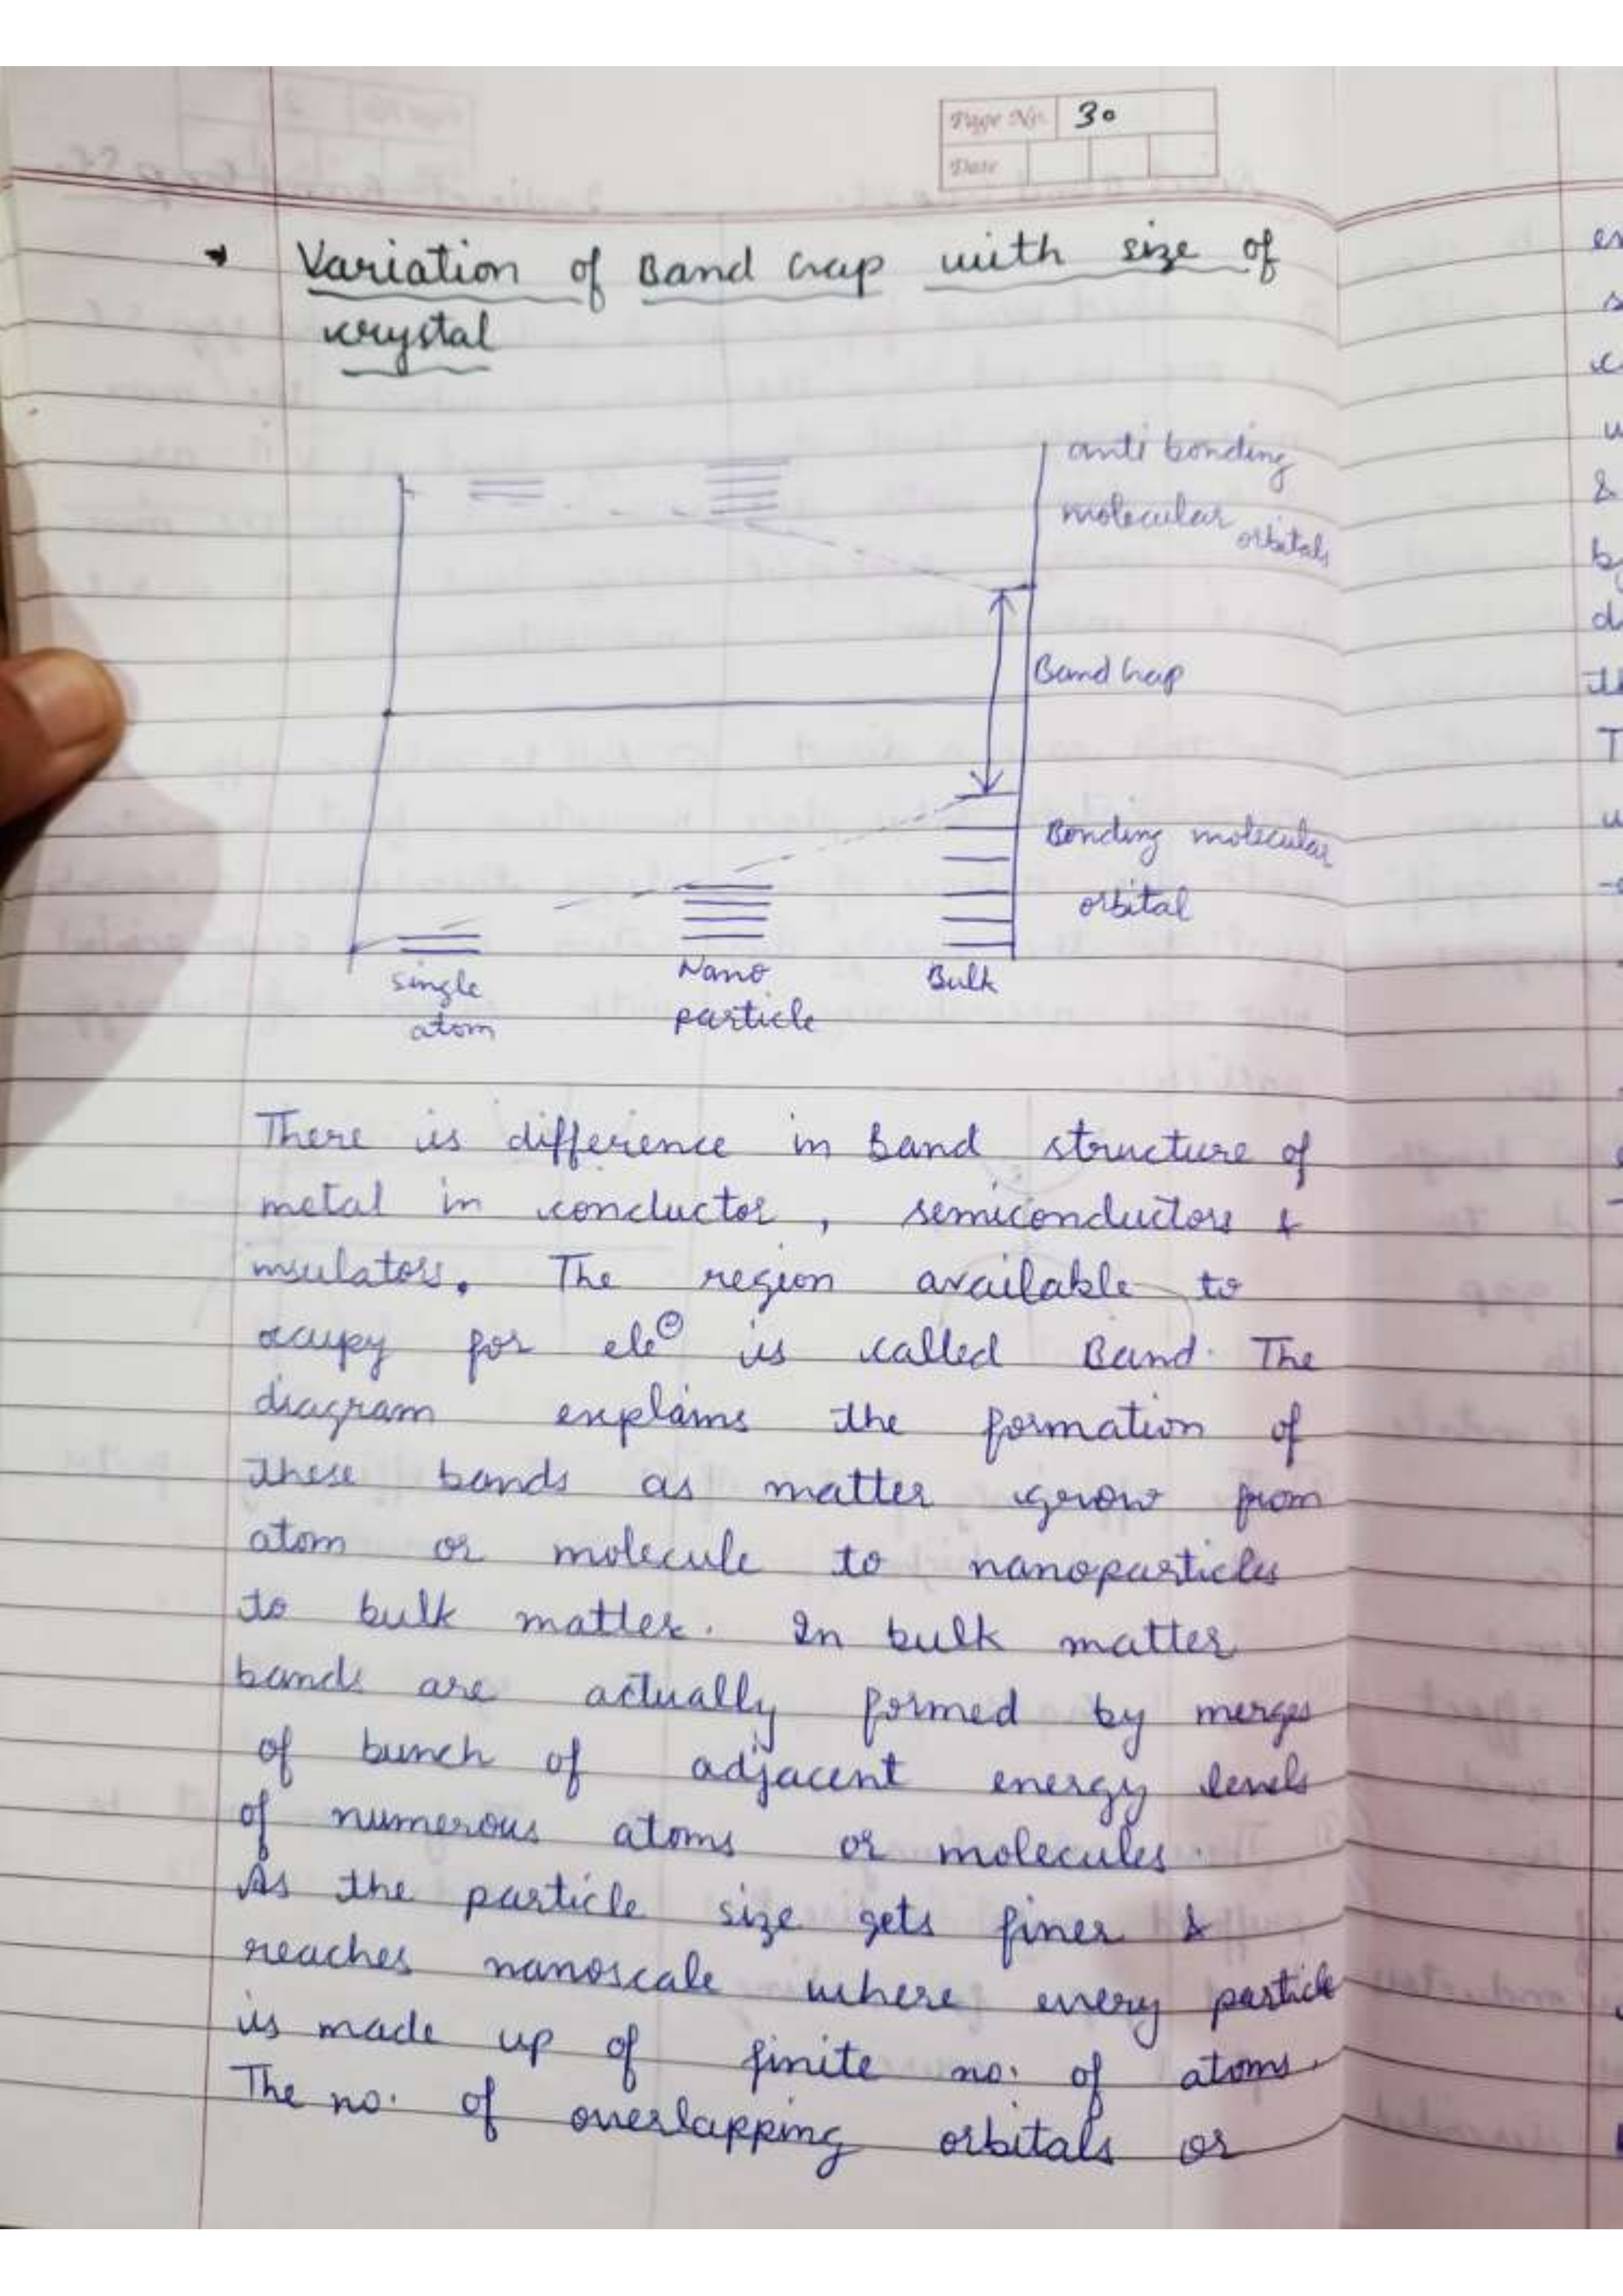 Page No. 30
Date
Variation of Band Gap with size of
crystal
anti bonding
molecular
orbitals
Band Gap
Bonding molecular
orbital
single
atom
Nano
particle
Bulk
There is difference in band structure of
metal in conductor, semiconductors &
insulators. The region available to
occupy for ele⊖ is called Band. The
diagram explains the formation of
these bands as matter grow from
atom or molecule to nanoparticles
to bulk matter. In bulk matter
bands are actually formed by merges
of bunch of adjacent energy levels
of numerous atoms or molecules.
As the particle size gets finer &
reaches nanoscale where every particle
is made up of finite no. of atoms.
The no. of overlapping orbitals or